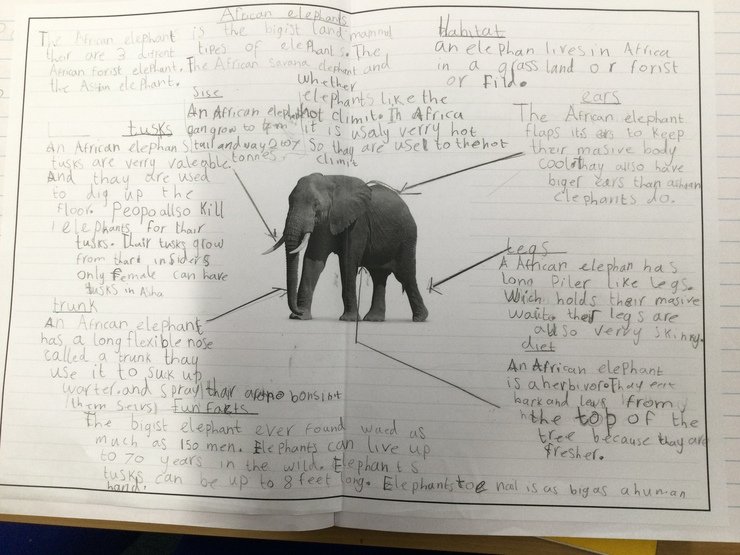 African elephants
The African elephant is the bigist land mammal
thar are 3 difrent tipes of elephants. The
African forist elethant. The African savana elephant and
the Asian elephant.
Habitat
an elephan lives in Africa
in a grass land or forist
or fild.
Sise
An African elephant
gan grow to 4m
tall and way
tonnes
whether
elephants like the
hot climit. In Africa
it is usaly verry hot
so thay are usel to the hot
climit
ears
The African elephant
flaps its ears to keep
their masive body
cool. thay allso have
biger ears than
elephants do.
tusks
An African elephan s
tusks are verry valeable.
And thay are used
to dig up the
floor. Peopo allso kill
elephants for thair
tusks. Thair tusks grow
from thard insiders
only female can have
tusks in Aisha
trunk
An African elephant
has a long flexible nose
called a trunk thay
use it to suk up
warter. and spray thair
Legs
A African elephan has
lonn Piler like legs.
Wich holds their masive
waite their legs are
allso verry skinny.
diet
An African elephant
is a herbivore. Thay eat
bark and levs from
the top of the
tree because thay are
fresher.
fun facts
The bigist elephant ever found waed as
much as 150 men. Elephants can live up
to 70 years in the wild. Elephants
tusks can be up to 8 feet long. Elephants toe nal is as big as a human
hand.